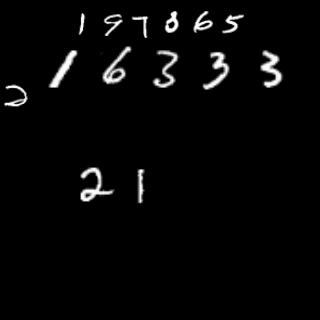 197865
16333
2
21